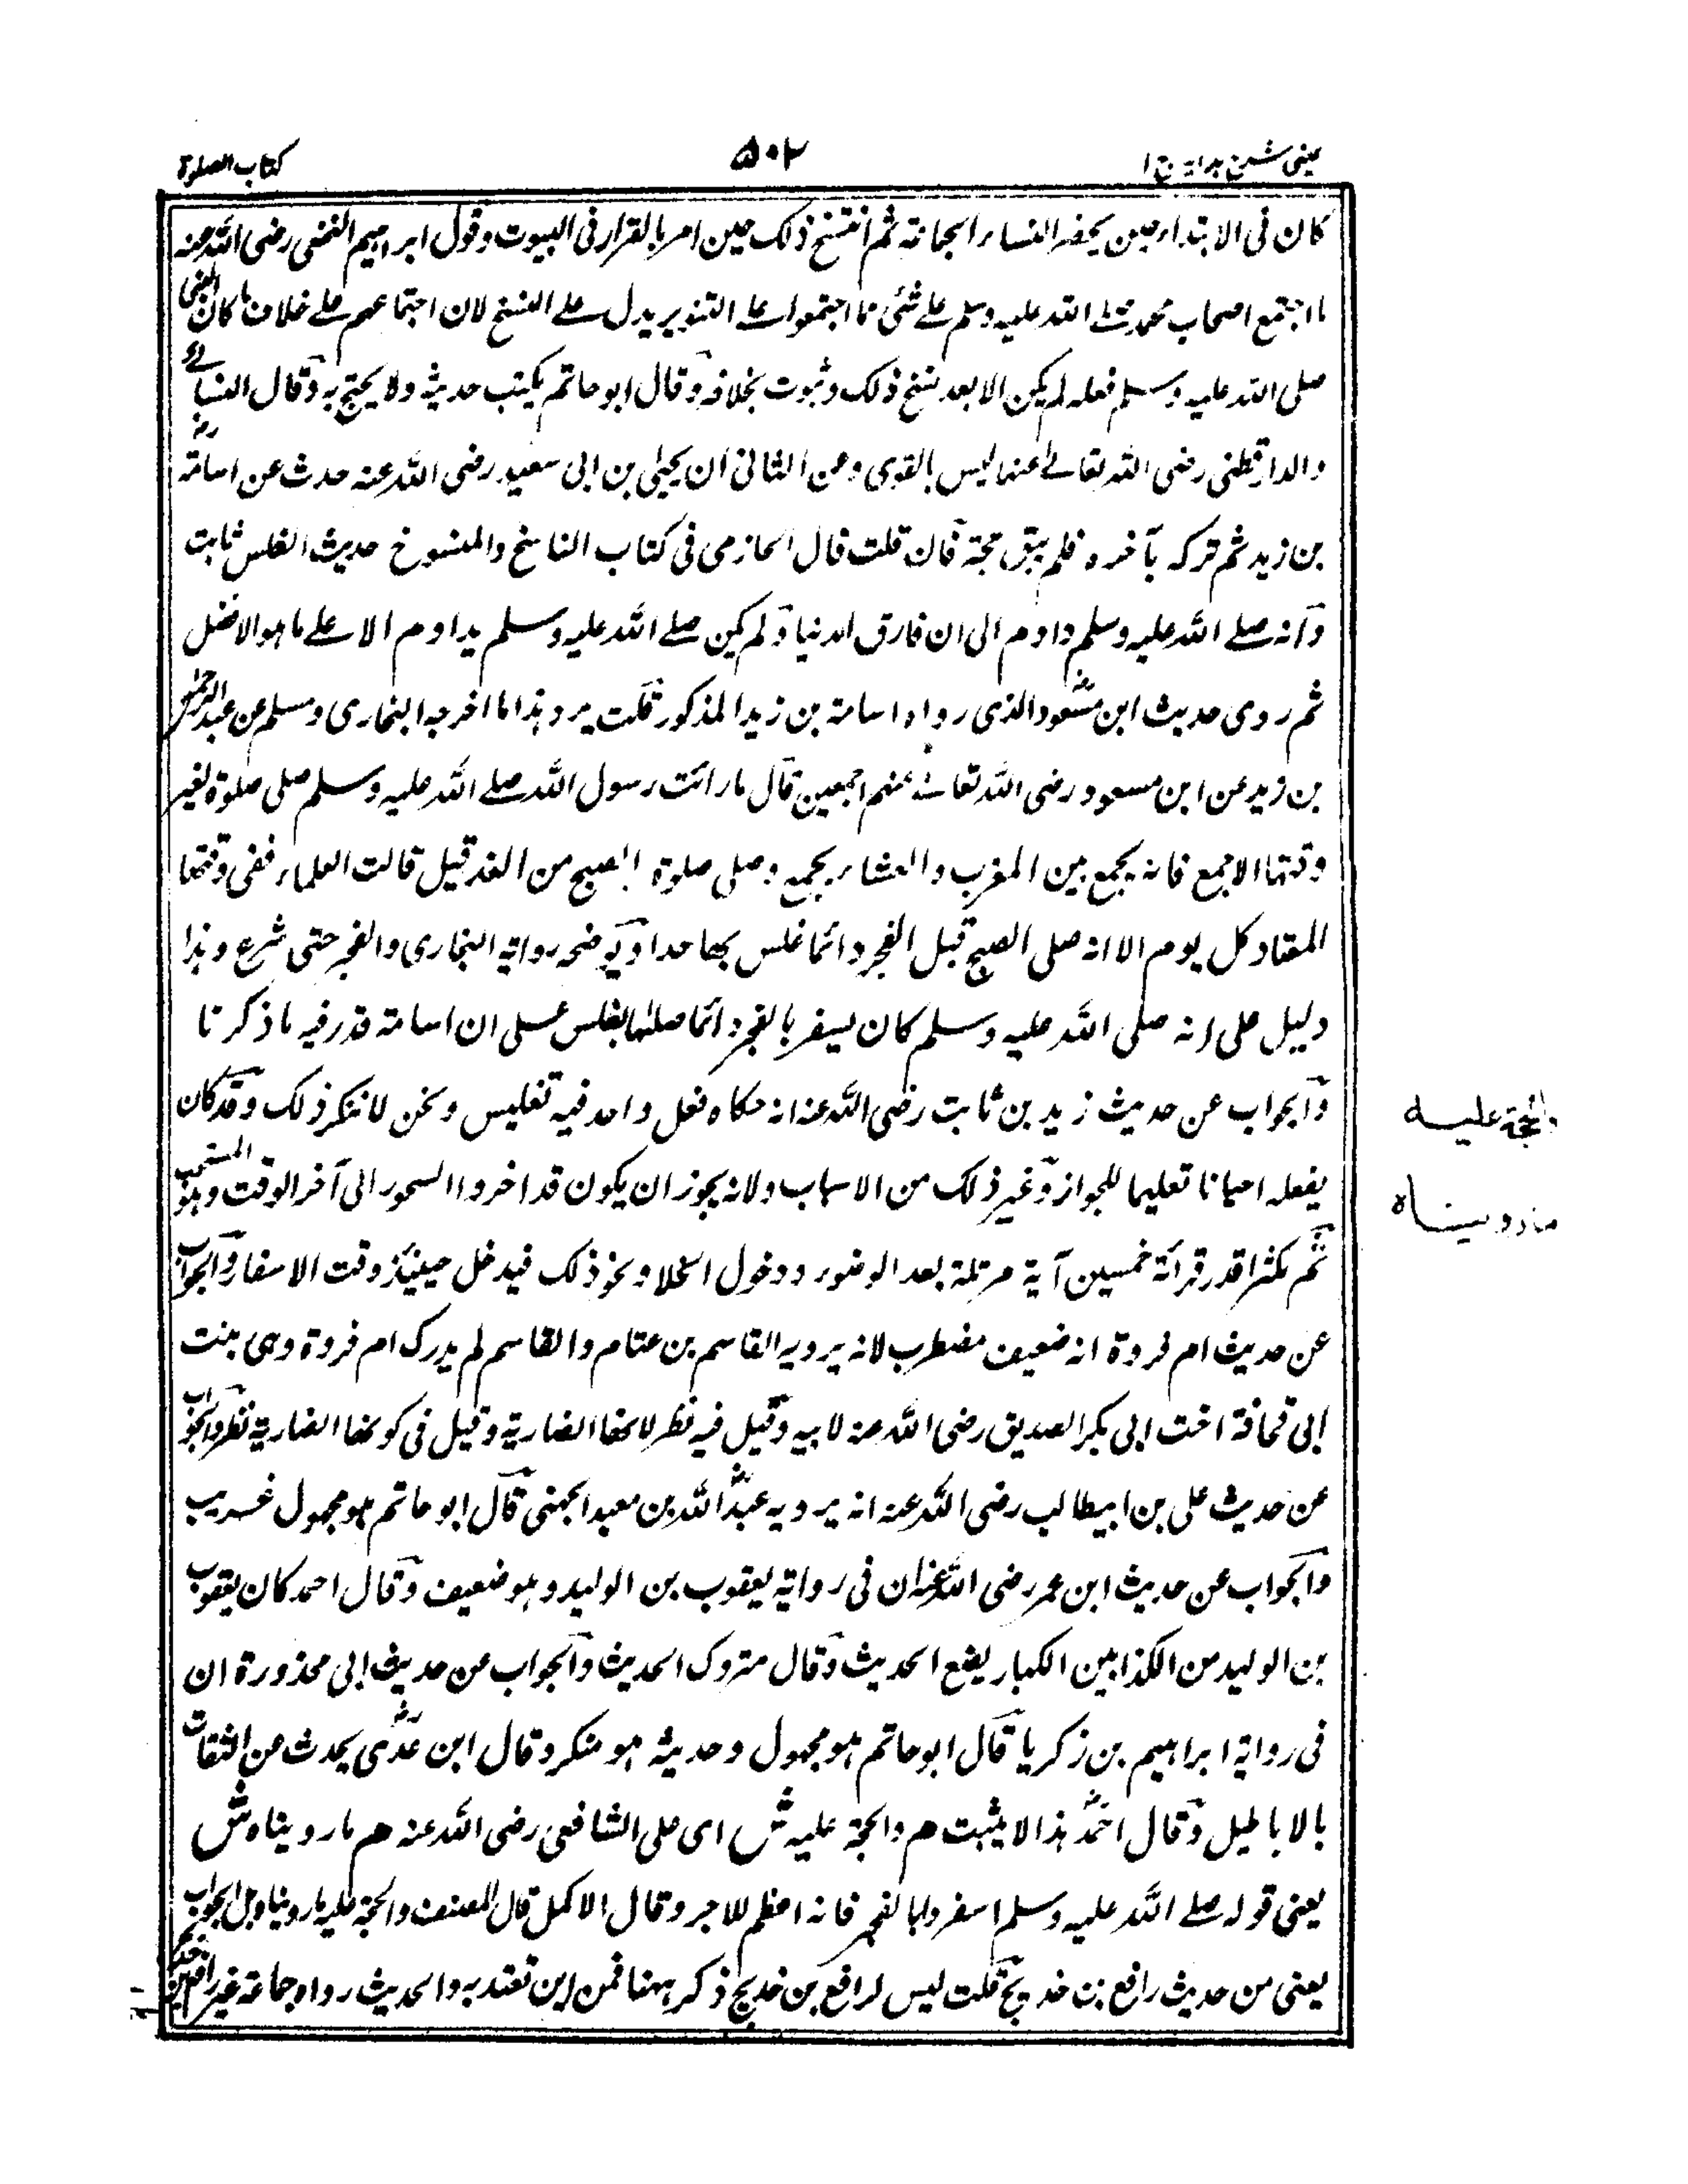 عينى شرح هداية ج ١
٥٠٢
كتاب الصلوة
كان فى الابتداء حين يحضر النساء الجماعة ثم انتسخ ذلك حين امر بالقرار فى البيوت وقول ابراهيم النخعى رضى الله عنه
ما اجتمع اصحاب محمد صلے الله عليه وسلم علے شئى ما اجتمعوا علے التنوير يدل علے النسخ لان اجتماعهم علے خلاف ما كان النبى
صلى الله عليه وسلم فعله لم يكن الا بعد نسخ ذلك وثبوت بخلافه وقال ابو حاتم يكتب حديثه ولا يحتج به وقال النسائے
والدارقطنى رضى الله تعالے عنهما ليس بالقوى وعن الثانى ان يحيى بن ابى سعيد رضى الله عنه حدث عن اسامة
بن زيد ثم تركه بآخره فلم يبق حجة فان قلت قال الحازمى فى كتاب الناسخ والمنسوخ حديث الغلس ثابت
وانه صلے الله عليه وسلم داوم الى ان فارق الدنيا ولم يكن صلے الله عليه وسلم يداوم الا علے ما هو الافضل
ثم روى حديث ابن مسعود الذى رواه اسامة بن زيد المذكور قلت يرد هذا ما اخرجه البخارى ومسلم عن عبد الرحمن
بن زيد عن ابن مسعود رضى الله تعالے عنهم اجمعين قال ما رائت رسول الله صلے الله عليه وسلم صلى صلوة لغير
وقتها الا بجمع فانه يجمع بين المغرب والعشاء بجمع وصلى صلوة الصبح من الغد قبل قالت العلماء ففى وقتها
المعتاد كل يوم الا انه صلى الصبح قبل الفجر دائما غلس بها حدا ويوضحه رواية البخارى والفجر حتى شرع وهذا
دليل على انه صلى الله عليه وسلم كان يسفر بالفجر دائما صلها بغلس عسلى ان اسامة قدر فيه ما ذكرنا
والجواب عن حديث زيد بن ثابت رضى الله عنه انه حكاه فعل واحد فيه تغليس ونحن لا ننكر ذلك وقد كان
يفعله احيانا تعليما للجواز وغير ذلك من الاسباب ولانه يجوز ان يكون قد اخروا السحور الى آخر الوقت وهو المستحب
ثم مكثرا قدر قرائة خمسين آية مرتلة بعد الوضوء ودخول الخلا ونحو ذلك فيدخل حينئذ وقت الاسفار والجواب
عن حديث ام فروة انه ضعيف مضطرب لانه يرويه القاسم بن عتام والقاسم لم يدرك ام فروة وهى بنت
ابى قحافة اخت ابى بكر الصديق رضى الله عنه لابيه وقيل فيه نظر لانها انصارية وقيل فى كونها انصارية نظر والجواب
عن حديث على بن ابيطالب رضى الله عنه انه يرويه عبد الله بن معبد الجهنى قال ابو حاتم هو مجهول غريب
والجواب عن حديث ابن عمر رضى الله عنه ان فى رواية يعقوب بن الوليد وهو ضعيف وقال احمد كان يعقوب
بن الوليد من الكذابين الكبار يضع الحديث وقال متروك الحديث والجواب عن حديث ابى محذورة ان
فى رواية ابراهيم بن زكريا قال ابو حاتم هو مجهول وحديثه هو منكر وقال ابن عدى يحدث عن الثقات
بالاباطيل وقال احمد هذا لا يثبت هم والحجة عليه ش اى على الشافعى رضى الله عنه هم ما رويناه ش
يعنى قوله صلے الله عليه وسلم اسفروا بالفجر فانه اعظم للاجر وقال الاكمل قال المصنف والحجة عليه ما روينا وهل الجواب
يعنى من حديث رافع بن خديج قلت ليس لرافع بن خديج ذكر ههنا فمن اين تعتد به والحديث رواه جماعة غير رافع بن خديج
والحجة عليه
ما رويناه